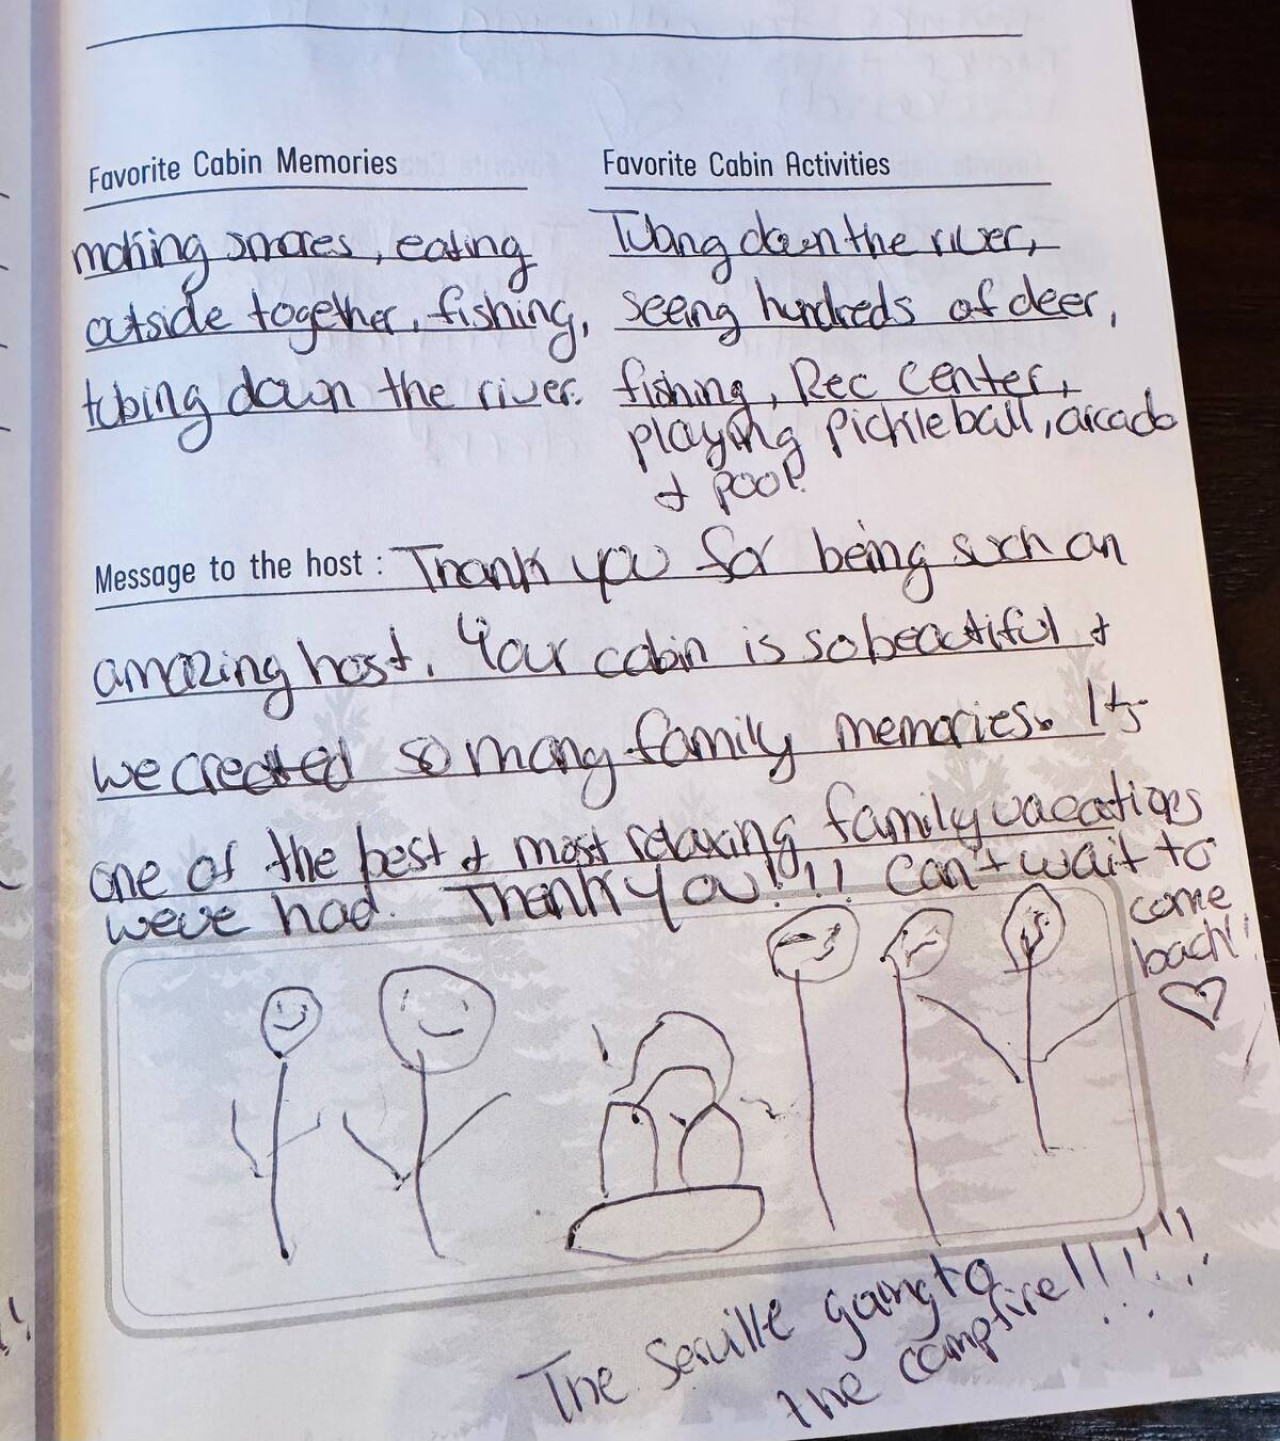 Favorite Cabin Memories
making smores, eating
outside together, fishing,
tubing down the river.
Favorite Cabin Activities
Tubing down the river,
seeing hundreds of deer,
fishing, Rec center,
playing pickleball, arcade
& pool.
Message to the host : Thank you for being such an
amazing host. Your cabin is so beautiful &
we created so many family memories. Its
one of the best & most relaxing family vacations
weve had. Thank you!!!! Can't wait to
come
back!!
The Seville going to
the campfire!!!!!!